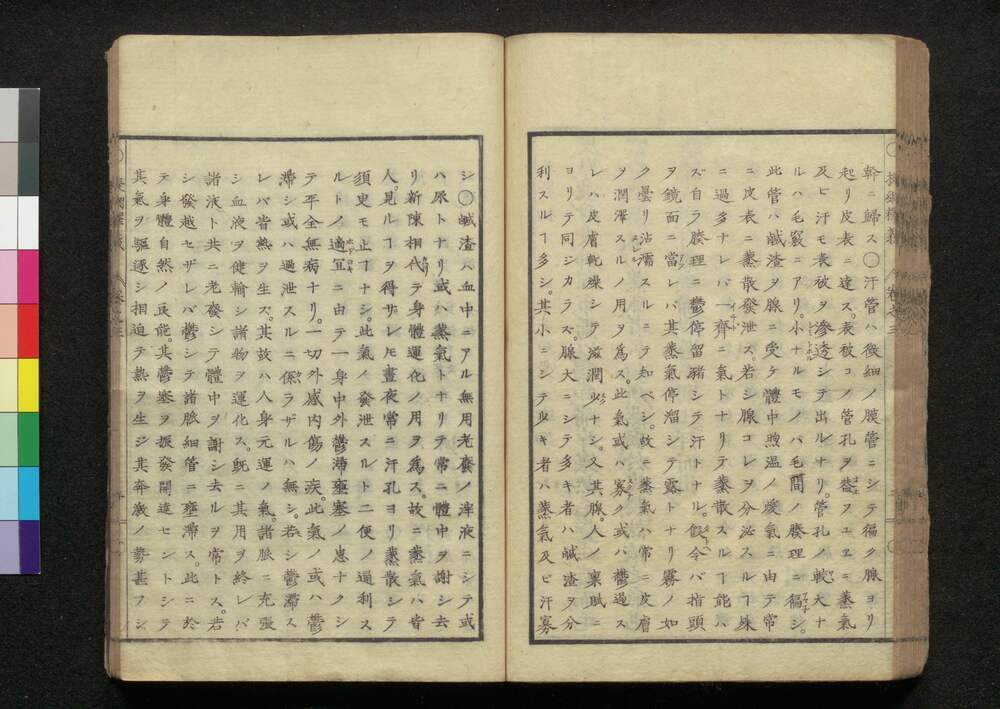 幹ニ歸ス〇汗管ハ微細ノ膜管ニシテ徧ク腺ヨリ
起リ皮表ニ達ス。表被コノ管孔ヲ盖フユヱニ蒸氣
及ヒ汗モ表被ヲ滲透シテ出ルナリ。管孔ノ較大ナ
ルハ毛竅ニアリ。小ナルモノハ毛間ノ腠理ニ徧シ。
此管ハ鹹渣ヲ腺ニ受ケ體中煦温ノ煖氣ニ由テ常
ニ皮表ニ蒸散發泄ス。若シ腺コレヲ分泌スルヿ殊
ニ過多ナレバ一齊ニ氣トナリテ蒸散スルヿ能ハ
ズ自ラ腠理ニ鬱停留瀦シテ汗トナル。假令バ指頭
ヲ鏡面ニ當レバ其蒸氣停溜シテ露トナリ霧ノ如
ク曇リ沾濡スルニテ知ベシ。故ニ蒸氣ハ常ニ皮膚
ヲ潤澤スルノ用ヲ爲ス。此氣或ハ寡ク或ハ鬱過ス
レハ皮膚乾燥シテ滋潤少ナシ又其腺。人ノ稟賦ニ
ヨリテ同ジカラズ。腺大ニシテ多キ者ハ鹹渣ヲ分
利スルヿ多シ。其小ニシテ少キ者ハ蒸氣及ビ汗寡
シ〇鹹渣ハ血中ニアル無用老廢ノ滓液ニシテ或
ハ尿トナリ或ハ蒸氣トナリテ常ニ體中ヲ謝シ去
リ新陳相代テ身體運化ノ用ヲ爲ス。故ニ蒸氣ハ皆
人見ルヿヲ得サレ𪜈晝夜常ニ汗孔ヨリ蒸散シテ
須臾モ止ヿナシ。此氣ノ發泄スルト二便ノ通利ス
ルトノ適宜ニ由テ一身中外鬱滯壅塞ノ患ナクシ
テ平全無病ナリ。一切外感内傷ノ疾。此氣ノ或ハ鬱
滯シ或ハ過泄スルニ係ラザルハ無シ。若シ鬱滯ス
レバ皆熱ヲ生ス。其故ハ人身元運ノ氣。諸脈ニ充張
シ血液ヲ健輸シ諸物ヲ運化ス。既ニ其用ヲ終レバ
諸液ト共ニ老廢シテ體中ヲ謝シ去ルヲ常トス。若
シ發越セザレバ鬱シテ諸脈細管ニ壅滯ス。此ニ於
テ身體自然ノ良能。其鬱塞ヲ振發開達センドシテ
其氣ヲ驅逐シ相迫テ熱ヲ生ジ其奔激ノ勢甚フシ